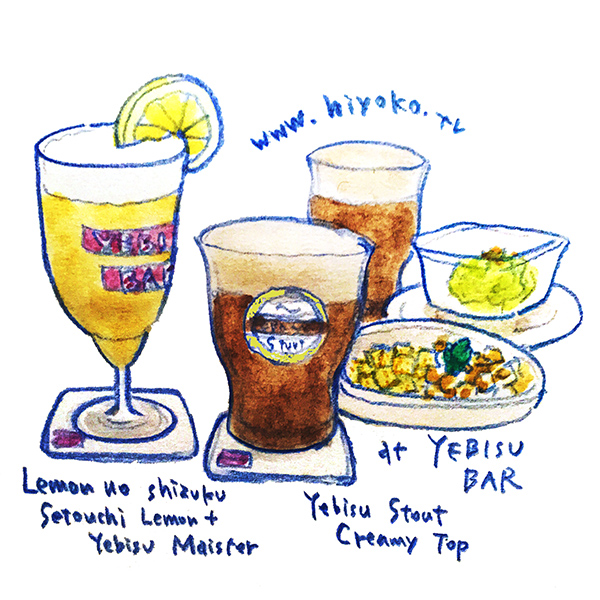 www.hiyoko.tv
YEBI
BAR
Stout
at YEBISU
BAR
Lemon no shizuku
Setouchi Lemon +
Yebisu Maister
Yebisu Stout
Creamy Top